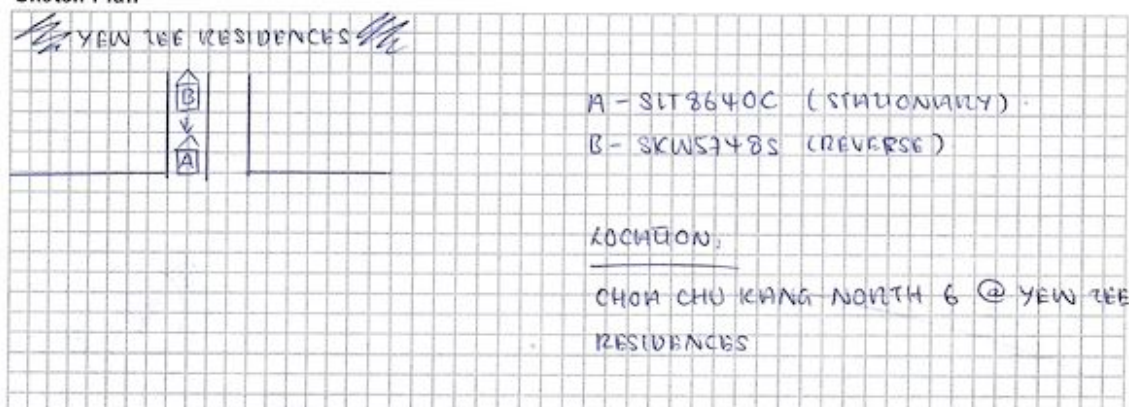 Sketch Plan
YEW TEE RESIDENCES
B
A
A - SLT8640C (STATIONARY)
B - SKW5748S (REVERSE)
LOCATION:
CHOA CHU KANG NORTH 6 @ YEW TEE
RESIDENCES